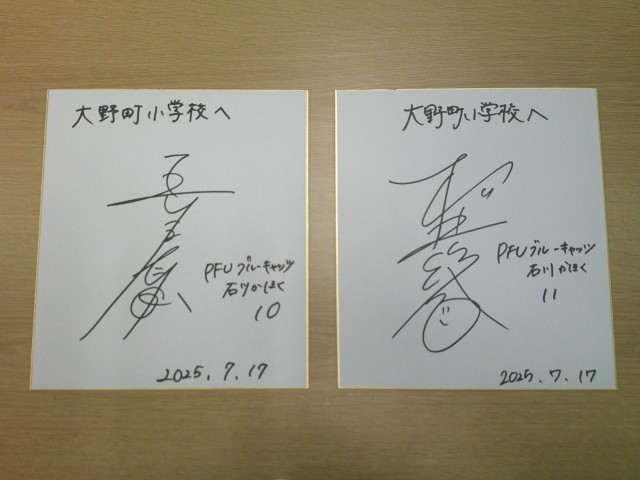 大野町小学校へ
PFUブルーキャッツ
石川かほく
10
2025.7.17
大野町小学校へ
PFUブルーキャッツ
石川かほく
11
2025.7.17